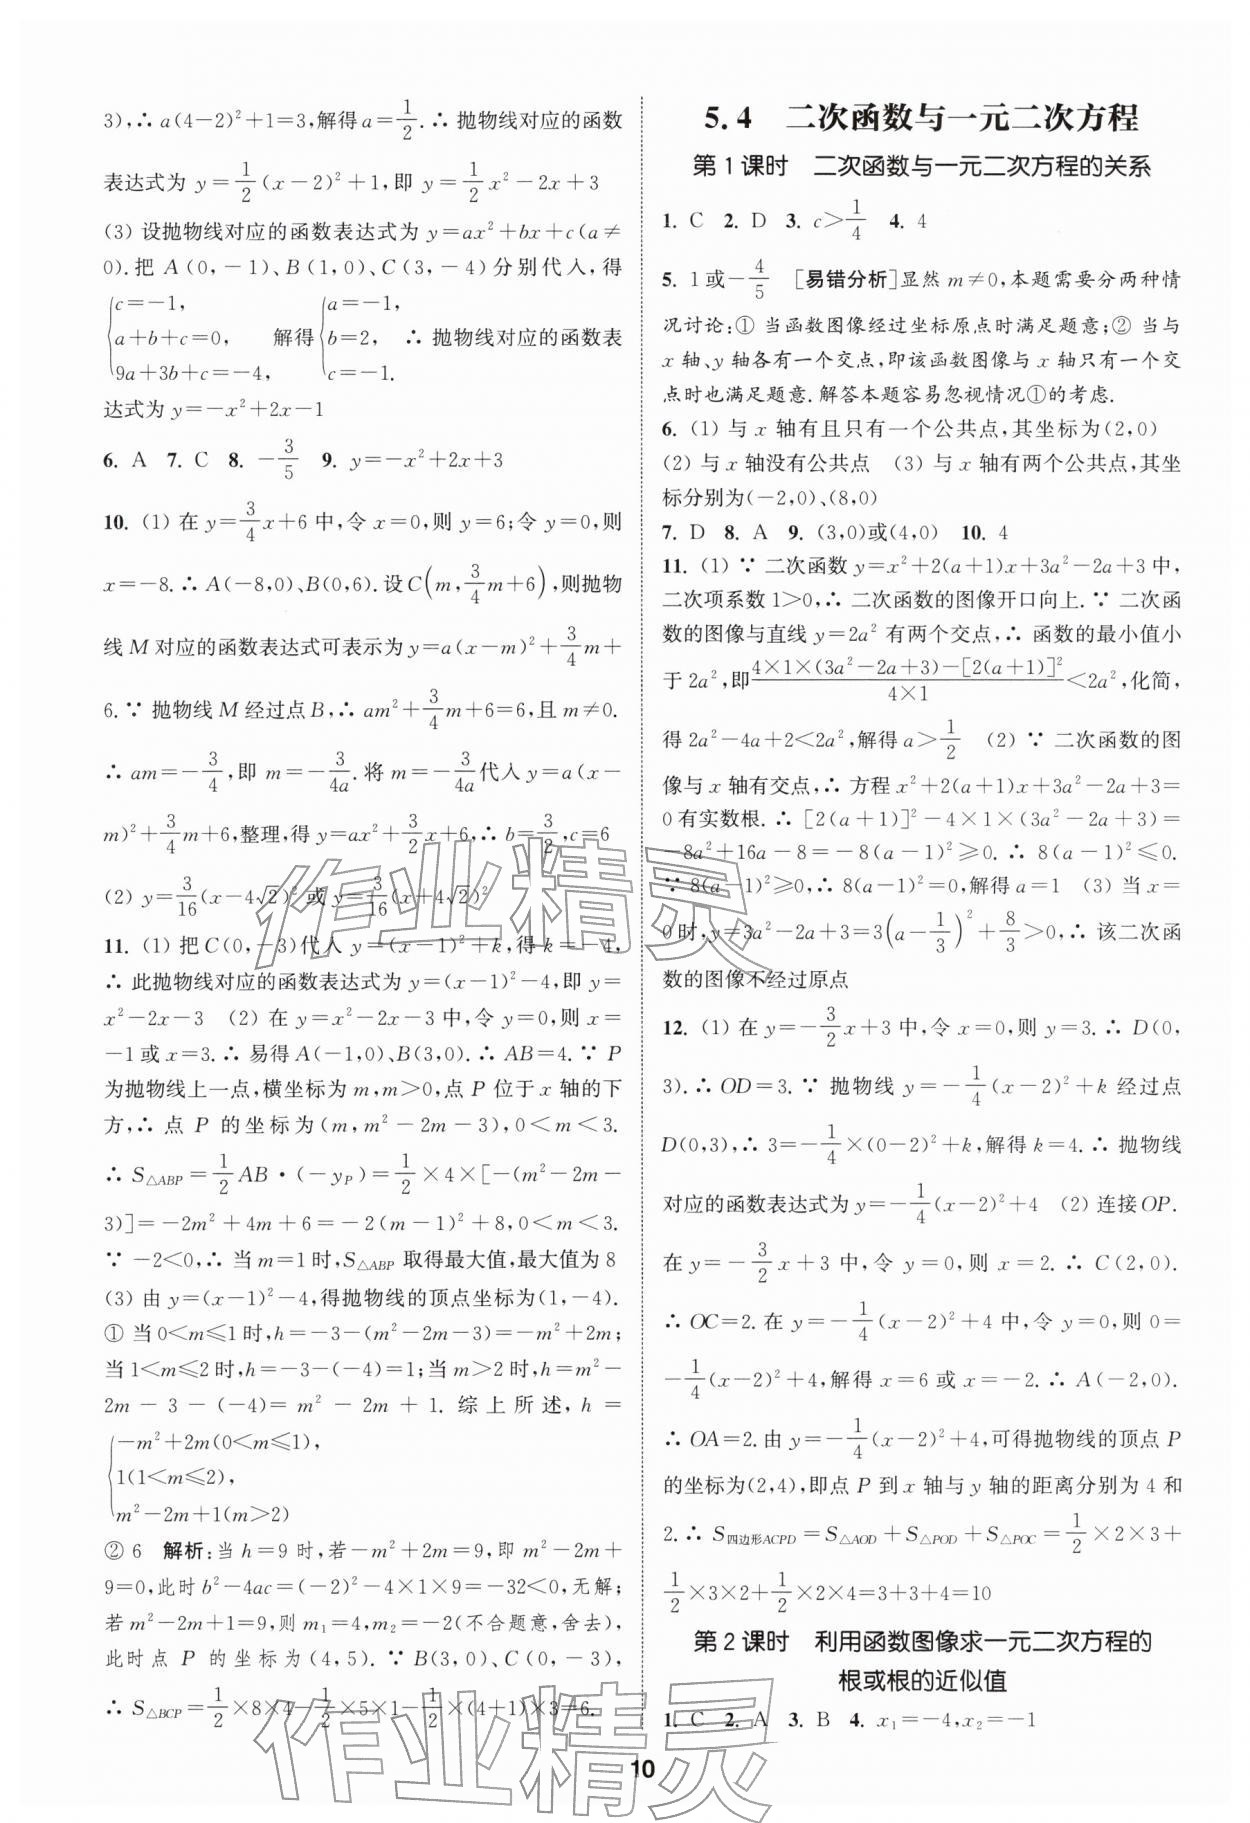 3),∴ a(4-2)²+1=3,解得a=1/2.∴ 抛物线对应的函数
表达式为 y=1/2(x-2)²+1,即 y=1/2x²-2x+3
(3) 设抛物线对应的函数表达式为 y=ax²+bx+c(a≠
0).把 A(0,-1)、B(1,0)、C(3,-4)分别代入,得
{c=-1, a+b+c=0, 9a+3b+c=-4, 解得{a=-1, b=2, c=-1. ∴ 抛物线对应的函数表
达式为 y=-x²+2x-1
6. A 7. C 8. -3/5 9. y=-x²+2x+3
10. (1) 在 y=3/4x+6 中,令 x=0,则 y=6;令 y=0,则
x=-8.∴ A(-8,0)、B(0,6).设C(m,3/4m+6),则抛物
线 M 对应的函数表达式可表示为 y=a(x-m)²+3/4m+
6.∵ 抛物线 M 经过点 B,∴ am²+3/4m+6=6,且 m≠0.
∴ am=-3/4,即 m=-3/4a.将 m=-3/4a代入 y=a(x-
m)²+3/4m+6,整理,得 y=ax²+3/2x+6,∴ b=3/2,c=6
(2) y=3/16(x-4√2)²或 y=3/16(x+4√2)²
11. (1) 把C(0,-3)代入 y=(x-1)²+k,得 k=-4,
∴ 此抛物线对应的函数表达式为 y=(x-1)²-4,即 y=
x²-2x-3 (2) 在 y=x²-2x-3 中,令 y=0,则 x=
-1或 x=3.∴ 易得A(-1,0)、B(3,0).∴ AB=4.∵ P
为抛物线上一点,横坐标为 m,m>0,点 P 位于 x 轴的下
方,∴ 点 P 的坐标为(m,m²-2m-3),0<m<3.
∴ S△ABP=1/2AB·(-yP)=1/2×4×[-(m²-2m-
3)]=-2m²+4m+6=-2(m-1)²+8,0<m<3.
∵ -2<0,∴ 当 m=1时,S△ABP 取得最大值,最大值为 8
(3) 由 y=(x-1)²-4,得抛物线的顶点坐标为(1,-4).
① 当0<m≤1时,h=-3-(m²-2m-3)=-m²+2m;
当1<m≤2时,h=-3-(-4)=1;当 m>2时,h=m²-
2m-3-(-4)=m²-2m+1.综上所述,h=
{-m²+2m(0<m≤1),
1(1<m≤2),
m²-2m+1(m>2)
② 6 解析:当 h=9 时,若-m²+2m=9,即 m²-2m+
9=0,此时 b²-4ac=(-2)²-4×1×9=-32<0,无解;
若 m²-2m+1=9,则 m₁=4,m₂=-2(不合题意,舍去),
此时点 P 的坐标为(4,5).∵ B(3,0)、C(0,-3),
∴ S△BCP=1/2×8×4-1/2×5×1-1/2×(4+1)×3=6.
5.4 二次函数与一元二次方程
第1课时 二次函数与一元二次方程的关系
1. C 2. D 3. c>1/4 4. 4
5. 1或-4/5 [易错分析]显然 m≠0,本题需要分两种情
况讨论:① 当函数图像经过坐标原点时满足题意;② 当与
x 轴、y 轴各有一个交点,即该函数图像与 x 轴只有一个交
点时也满足题意.解答本题容易忽视情况①的考虑.
6. (1) 与 x 轴有且只有一个公共点,其坐标为(2,0)
(2) 与 x 轴没有公共点 (3) 与 x 轴有两个公共点,其坐
标分别为(-2,0)、(8,0)
7. D 8. A 9. (3,0)或(4,0) 10. 4
11. (1) ∵ 二次函数 y=x²+2(a+1)x+3a²-2a+3中,
二次项系数1>0,∴ 二次函数的图像开口向上.∵ 二次函
数的图像与直线 y=2a² 有两个交点,∴ 函数的最小值小
于 2a²,即4×1×(3a²-2a+3)-[2(a+1)]²/4×1<2a²,化简,
得 2a²-4a+2<2a²,解得 a>1/2 (2) ∵ 二次函数的图
像与 x 轴有交点,∴ 方程 x²+2(a+1)x+3a²-2a+3=
0有实数根.∴ [2(a+1)]²-4×1×(3a²-2a+3)=
-8a²+16a-8=-8(a-1)²≥0.∴ 8(a-1)²≤0.
∵ 8(a-1)²≥0,∴ 8(a-1)²=0,解得 a=1 (3) 当 x=
0时,y=3a²-2a+3=3(a-1/3)²+8/3>0,∴ 该二次函
数的图像不经过原点
12. (1) 在 y=-3/2x+3 中,令 x=0,则 y=3.∴ D(0,
3).∴ OD=3.∵ 抛物线 y=-1/4(x-2)²+k 经过点
D(0,3),∴ 3=-1/4×(0-2)²+k,解得 k=4.∴ 抛物线
对应的函数表达式为 y=-1/4(x-2)²+4 (2) 连接OP.
在 y=-3/2x+3 中,令 y=0,则 x=2.∴ C(2,0).
∴ OC=2.在 y=-1/4(x-2)²+4 中,令 y=0,则 0=
-1/4(x-2)²+4,解得 x=6 或 x=-2.∴ A(-2,0).
∴ OA=2.由 y=-1/4(x-2)²+4,可得抛物线的顶点 P
的坐标为(2,4),即点 P 到 x 轴与 y 轴的距离分别为 4 和
2.∴ S四边形ACPD=S△AOD+S△POD+S△POC=1/2×2×3+
1/2×3×2+1/2×2×4=3+3+4=10
第2课时 利用函数图像求一元二次方程的
根或根的近似值
1. C 2. A 3. B 4. x₁=-4,x₂=-1
10
作业精灵
作业精灵